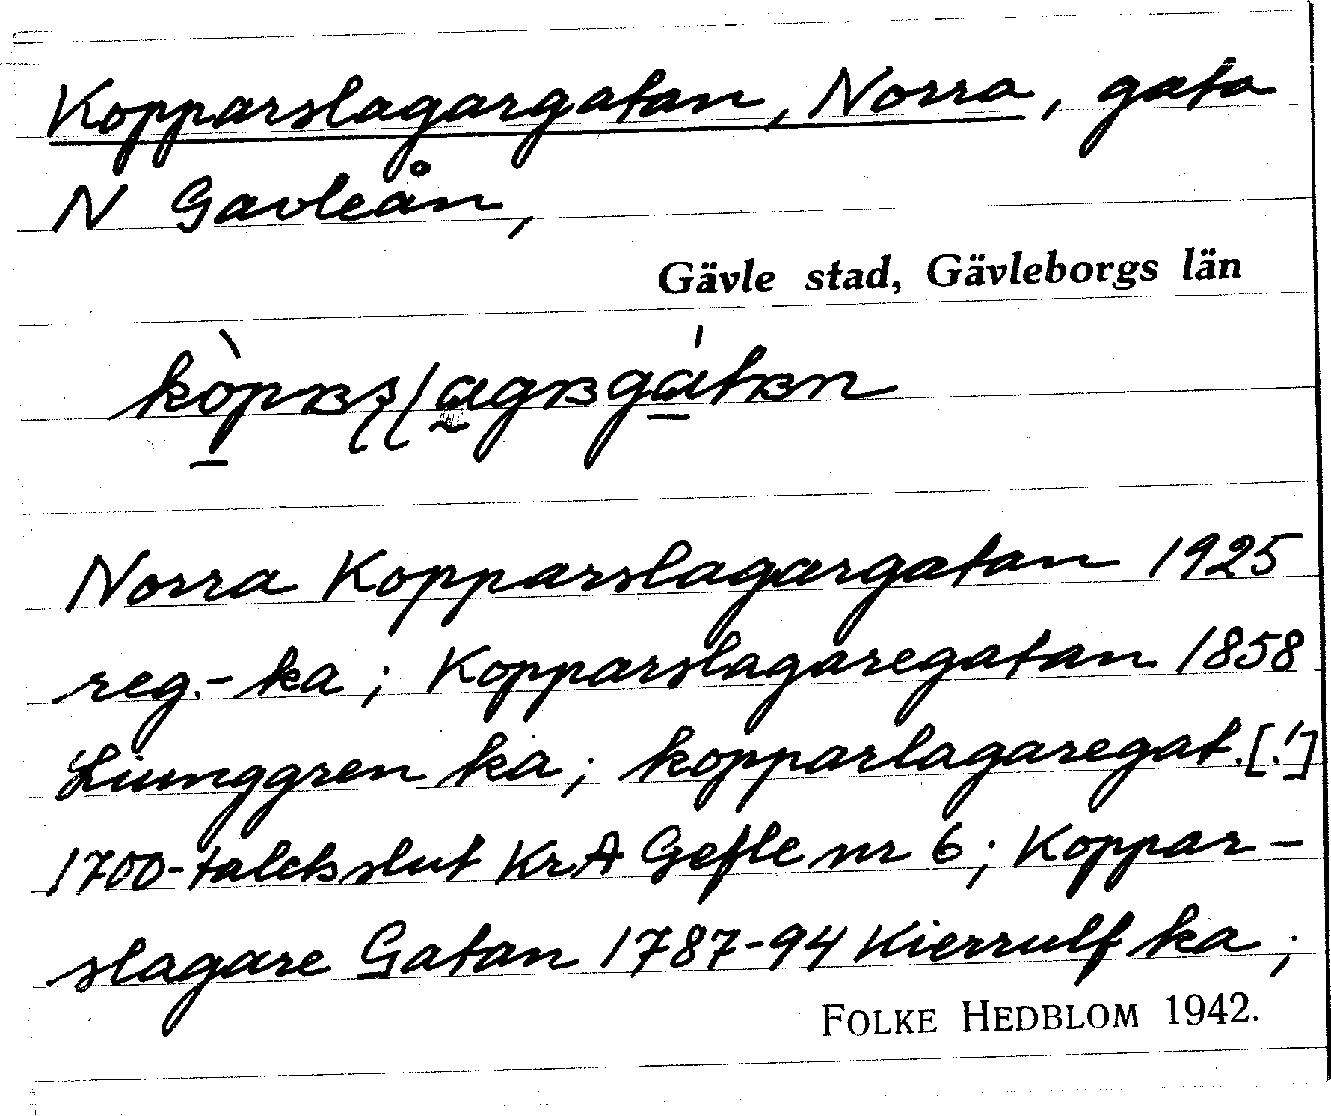 Kopparslagargatan, Norra, gata
N Gavleån,
Gävle stad, Gävleborgs län
Norra Kopparslagargatan 1925
reg.-ka; Kopparslagaregatan 1858
Liunggren ka; kopparlagaregat.[!]
1700-talets slut KrA Gefle nr 6; Koppar-
slagare Gatan 1787-94 Kierrulf ka;
FOLKE HEDBLOM 1942.